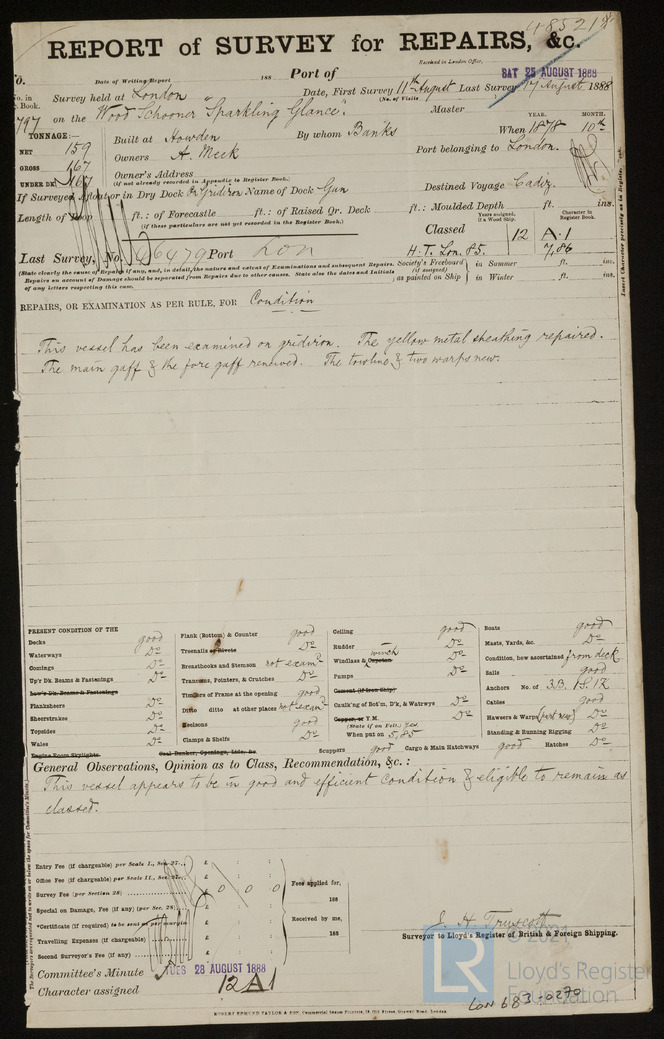 48521
REPORT of SURVEY for REPAIRS, &c.
Received in London Office,
SAT 25 AUGUST 1888
Date of Writing Report 188 Port of
No. in Book. Survey held at London Date, First Survey 11th August Last Survey 17 August 1888
(No. of Visits
797 on the Wood Schooner "Sparkling Glance". Master
TONNAGE:— Built at Howden By whom Banks When 1878 10th
YEAR. MONTH.
NET 159
GROSS 167
UNDER DK 167
Owners A. Meek Port belonging to London.
Owner's Address
(if not already recorded in Appendix to Register Book.)
If Surveyed Afloat or in Dry Dock On Gridiron Name of Dock Gun Destined Voyage Cadiz.
Length of Poop ft.: of Forecastle ft.: of Raised Qr. Deck ft.: Moulded Depth ft. ins.
(if these particulars are not yet recorded in the Register Book.)
Years assigned, if a Wood Ship. Character in Register Book.
Classed 12 A.1
Last Survey, No. 46479 Port Lon H.T. Lon. 85. 7,86
(State clearly the cause of Repairs if any, and, in detail, the nature and extent of Examinations and subsequent Repairs.
Repairs on account of Damage should be separated from Repairs due to other causes. State also the dates and Initials
of any letters respecting this case.
Society's Freeboard (if assigned) as painted on Ship in Summer ft. ins.
in Winter ft. ins.
Insert Character precisely as in Register.
REPAIRS, OR EXAMINATION AS PER RULE, FOR Condition
This vessel has been examined on gridiron. The yellow metal sheathing repaired.
The main gaff & the fore gaff renewed. The towline & two warps new.
PRESENT CONDITION OF THE
Decks good
Waterways Do
Comings Do
Up'r Dk. Beams & Fastenings Do
Low'r Dk. Beams & Fastenings
Planksheers Do
Sheerstrakes Do
Topsides Do
Wales Do
Engine Room Skylights
Plank (Bottom) & Counter good
Treenails or Rivets Do
Breasthooks and Stemson not examd
Transoms, Pointers, & Crutches Do
Timbers of Frame at the opening good
Ditto ditto at other places not examd
Keelsons good
Clamps & Shelfs Do
Coal Bunker, Openings, Lids, &c
Ceiling good
Rudder Do
winch
Windlass & Capstan Do
Pumps Do
Cement (if Iron Ship)
Caulk'ng of Bot'm, D'k, & Watrwys Do
Copper, or Y.M. Do
(State if on Felt.) Yes
When put on 5,85
Scuppers good Cargo & Main Hatchways good Hatches Do
Boats good
Masts, Yards, &c. Do
Condition, how ascertained from deck
Sails good
Anchors No. of 3B. 1S. 1K
Cables good
Hawsers & Warps (part new) Do
Standing & Running Rigging Do
General Observations, Opinion as to Class, Recommendation, &c.:
This vessel appears to be in good and efficient condition & eligible to remain as
classed.
Entry Fee (if chargeable) per Scale I., Sec. 27... £ : :
Office Fee (if chargeable) per Scale II., Sec. 27... £ : :
Survey Fee (per Section 28) £ 0 0 0
Special on Damage, Fee (if any) (per Sec. 28) £ : :
*Certificate (if required) to be sent as per margin £ : :
Travelling Expenses (if chargeable) £ : :
Second Surveyor's Fee (if any) £ : :
Fees applied for, 188
Received by me, 188
J. H. Truscott
Surveyor to Lloyd's Register of British & Foreign Shipping.
Committee's Minute TUES 28 AUGUST 1888
Character assigned 12 A1
ROBERT EDMUND TAYLOR & SON, Commercial Steam Printers, 19, Old Street, Goswell Road, London.
LON 683-0270
LR
© 2021
Lloyd's Register
Foundation